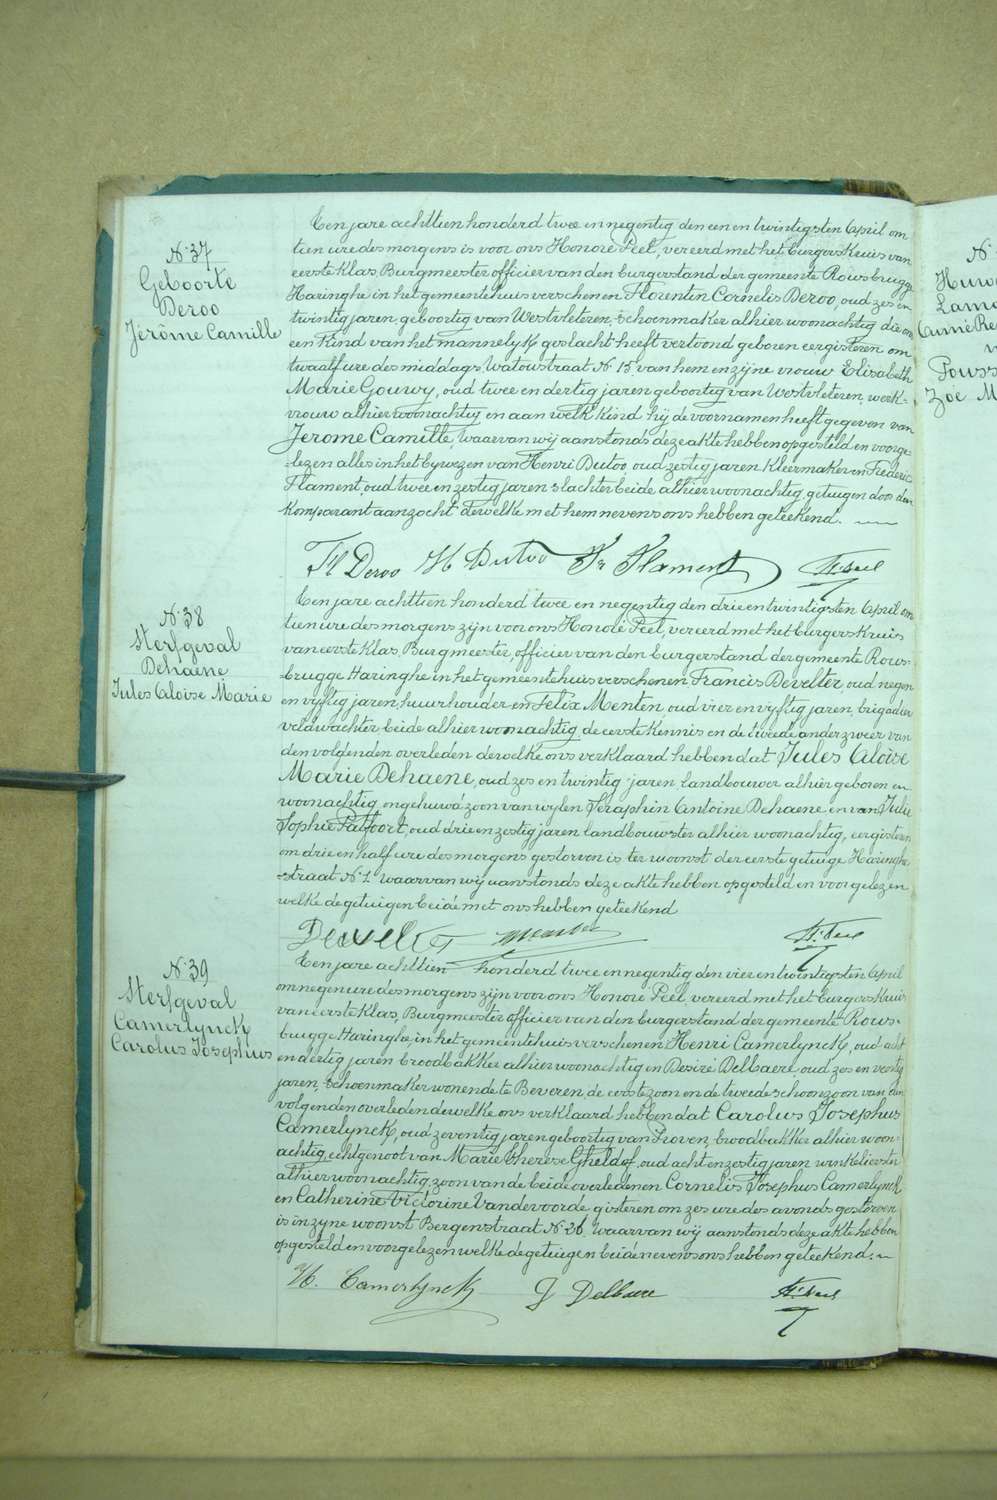 N. 37
Geboorte
Deroo
Jérôme Camille
Een jare achttien honderd twee en negentig den een en twintigsten April om
tien ure des morgens is voor ons Honoré Peel, vereerd met het burgers Kruis van
eerste Klas, Burgmeester officier van den burgerstand der gemeente Rousbrugge
Haringhe in het gemeentehuis verschenen Florentin Cornelis Deroo, oud zes en
twintig jaren, geboortig van Westvleteren, schoenmaker alhier woonachtig die ons
een Kind van het mannelyk geslacht heeft vertoond geboren eergisteren om
twaalf ure des middags, Watoustraat N. 15, van hem en zijne vrouw Elisabeth
Marie Gouwy, oud twee en dertig jaren geboortig van Westvleteren, werk-
vrouw alhier woonachtig en aan welk kind hij de voornamen heeft gegeven van
Jerome Camille, waarvan wij aanstonds deze akte hebben opgesteld en voorge-
lezen alles in het bywezen van Henri Dutoo, oud zestig jaren Kleermaker en Frederic
Flament, oud twee en zestig jaren slachter beide alhier woonachtig, getuigen door den
Komparant aanzocht dewelke met hem nevens ons hebben geteekend.
Fl Deroo H Dutoo Fr Flament H. Peel
N. 38
Sterfgeval
Dehaene
Jules Aloïse Marie
Een jare achttien honderd twee en negentig den drie en twintigsten April om
tien ure des morgens zijn voor ons Honoré Peel, vereerd met het burgers Kruis
van eerste Klas, Burgmeester, officier van den burgerstand der gemeente Rous-
brugge Haringhe in het gemeentehuis verschenen Francis Develter, oud negen
en vijftig jaren, huurhouder en Felix Menten oud vier en vyftig jaren, brigadier
veldwachter beide alhier woonachtig de eerste kennis en de tweede anderzweer van
den volgenden overleden dewelke ons verklaard hebben dat Jules Aloïse
Marie Dehaene, oud zes en twintig jaren landbouwer alhier geboren en
woonachtig, ongehuwd zoon van wylen Séraphin Antoine Dehaene en van Julie
Sophie Patfoort, oud drie en zestig jaren landbouwster alhier woonachtig, eergisteren
om drie en half ure des morgens gestorven is ter woonst der eerste getuige Haringhe
straat N. 1 waarvan wij aanstonds deze akte hebben opgesteld en voorgelezen
welke de getuigen beide met ons hebben geteekend
Develter Menten H. Peel
N. 39
Sterfgeval
Camerlynck
Carolus Josephus
Een jare achttien honderd twee en negentig den vier en twintigsten April
om negen ure des morgens zijn voor ons Honoré Peel, vereerd met het burgers Kruis
van eerste Klas, Burgmeester officier van den burgerstand der gemeente Rous-
brugge Haringhe, in het gemeentehuis verschenen Henri Camerlynck, oud acht
en dertig jaren broodbakker alhier woonachtig en Desiré Delbaere, oud zes en veertig
jaren, schoenmaker wonende te Beveren, de eerste zoon en de tweede schoonzoon van den
volgenden overleden dewelke ons verklaard hebben dat Carolus Josephus
Camerlynck, oud zeventig jaren geboortig van Proven, broodbakker alhier woon-
achtig, echtgenoot van Marie Therese Gheldof, oud acht en zestig jaren winkelierster
alhier woonachtig, zoon van de beide overledenen Cornelis Josephus Camerlynck
en Catherine Victorine Vandevoorde gisteren om zes ure des avonds gestorven
is in zyne woonst Bergenstraat N. 26, waarvan wij aanstonds deze akte hebben
opgesteld en voorgelezen welke de getuigen beide nevens ons hebben geteekend.
H. Camerlynck D Delbaere H. Peel
N.
Zoé M